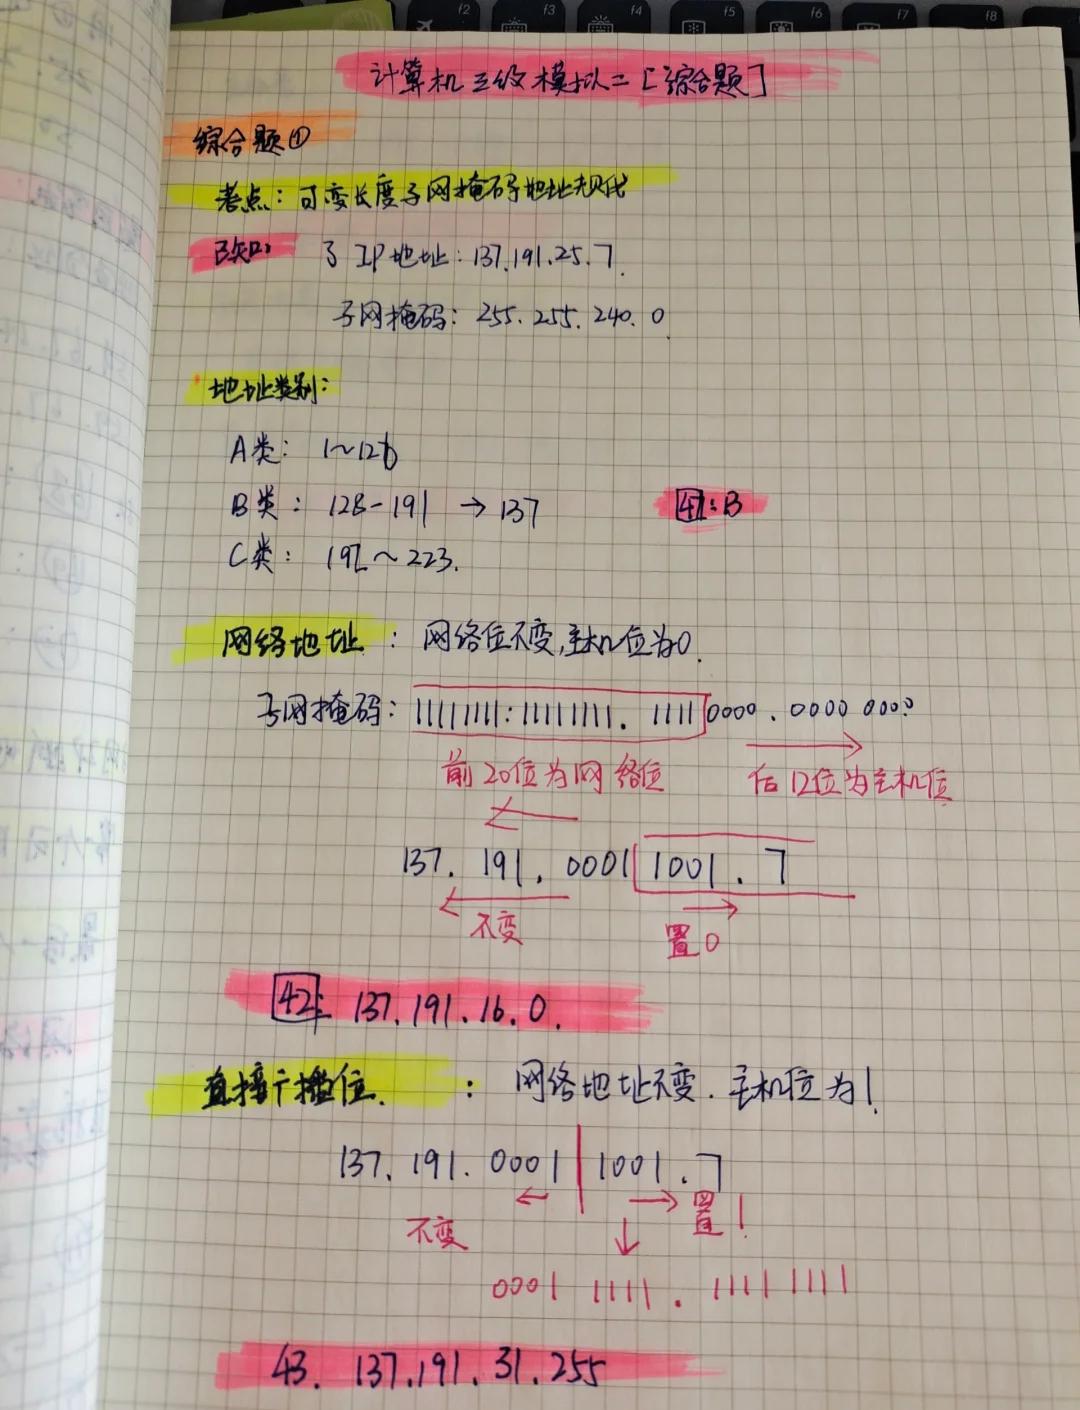 f2 f3 f4 f5 f6 f7 f8
计算机三级模拟二[综合题]
综合题①
考点：可变长度子网掩码地址规代
已知： 子 IP地址：137.191.25.7.
子网掩码：255.255.240.0
地址类别：
A类： 1～126
B类： 128-191 → 137 41:B
C类： 192～223.
网络地址： 网络位不变,主机位为0.
子网掩码：11111111:11111111. 11110000.00000000
前20位为网络位 后12位为主机位
137. 191. 0001 1001. 7
不变 置0
42: 137.191.16.0.
直接广播位. ： 网络地址不变. 主机位为1
137. 191. 0001 1001. 7
不变 置1
0001 1111. 1111 1111
43. 137.191.31.255